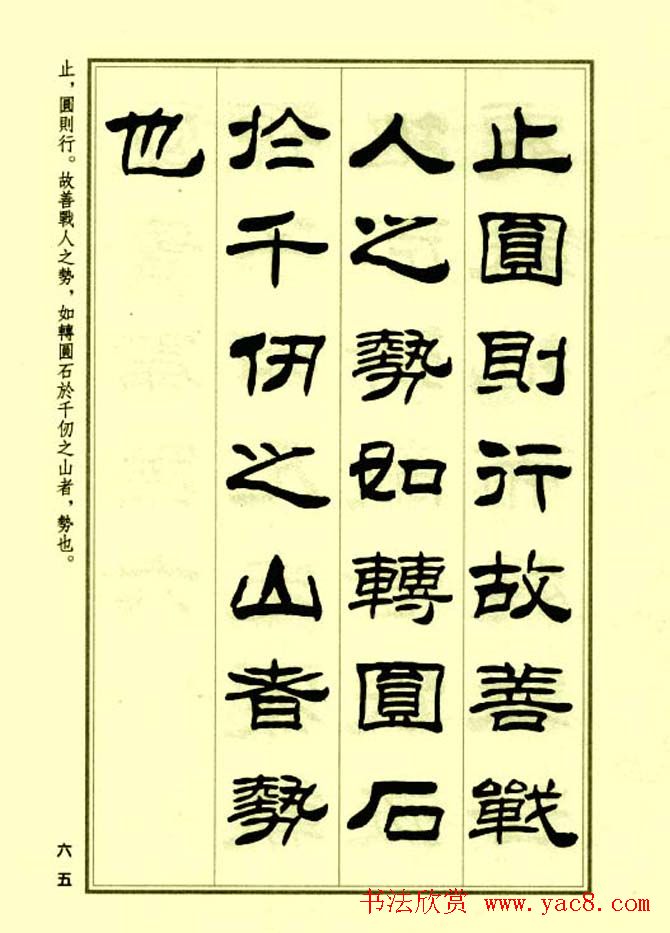 止圓則行故善戰
人之勢如轉圓石
於千仞之山者勢
也
止，圓則行。故善戰人之勢，如轉圓石於千仞之山者，勢也。
六五
书法欣赏 www.yac8.com